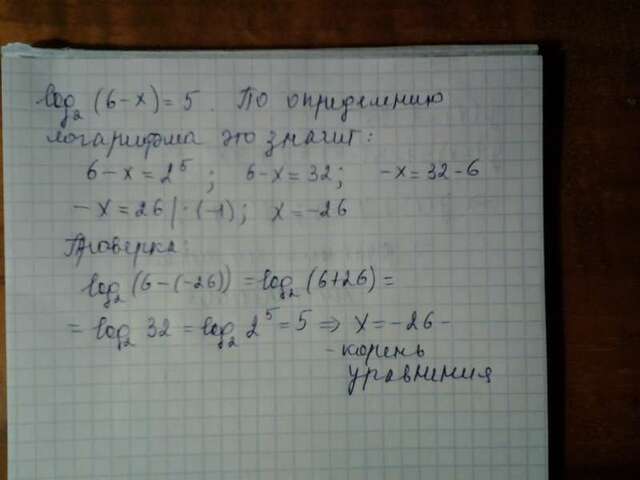 log₂ (6-x) = 5. По определению
логарифма это значит:
6-x = 2⁵; 6-x = 32; -x = 32-6
-x = 26 | · (-1); x = -26
Проверка:
log₂ (6-(-26)) = log₂ (6+26) =
= log₂ 32 = log₂ 2⁵ = 5 ⇒ x = -26 -
- корень
уравнения